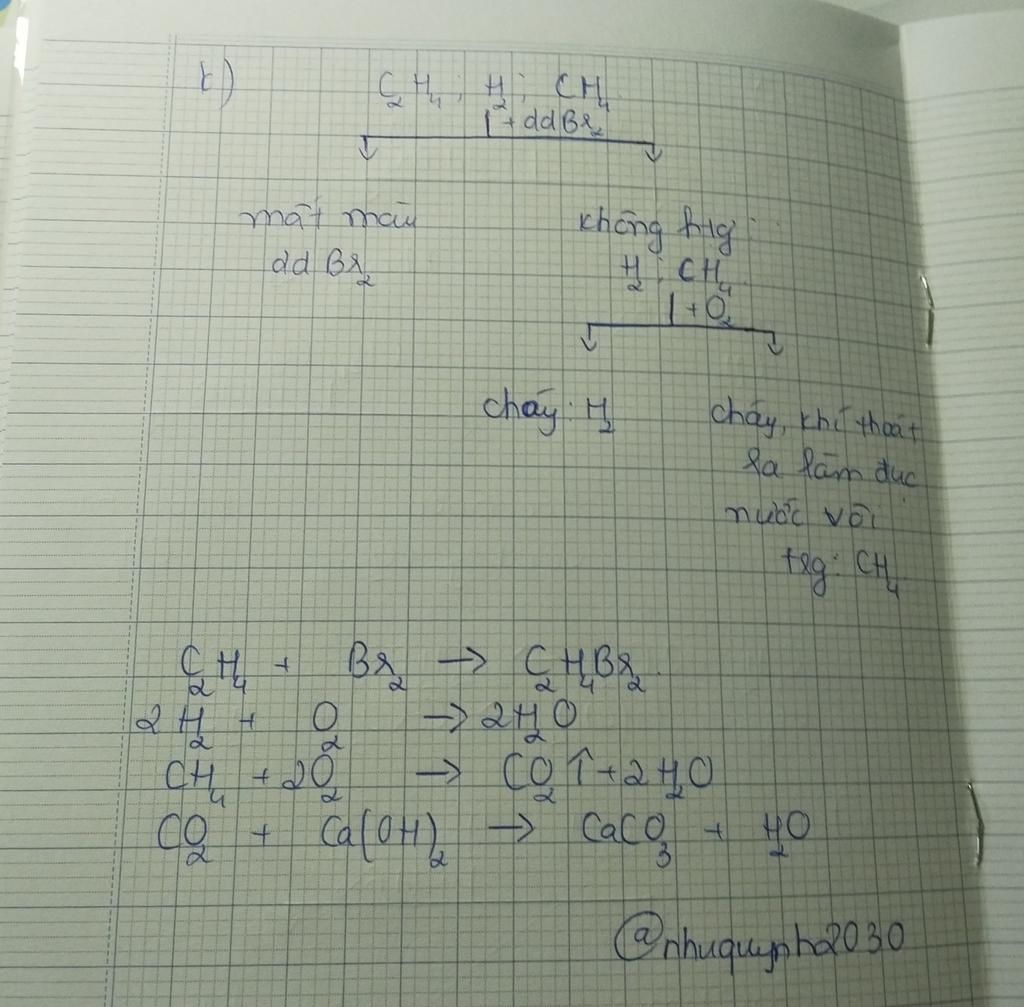 b) C₂H₄; H₂; CH₄
+ddBr₂
mất màu
dd Br₂
không h/tg:
H₂; CH₄
+O₂
cháy: H₂
cháy, khí thoát
ra làm đục
nước vôi
trg: CH₄
C₂H₄ + Br₂ → C₂H₄Br₂
2H₂ + O₂ → 2H₂O
CH₄ + 2O₂ → CO₂↑ + 2H₂O
CO₂ + Ca(OH)₂ → CaCO₃ + H₂O
@nhuquynh2030